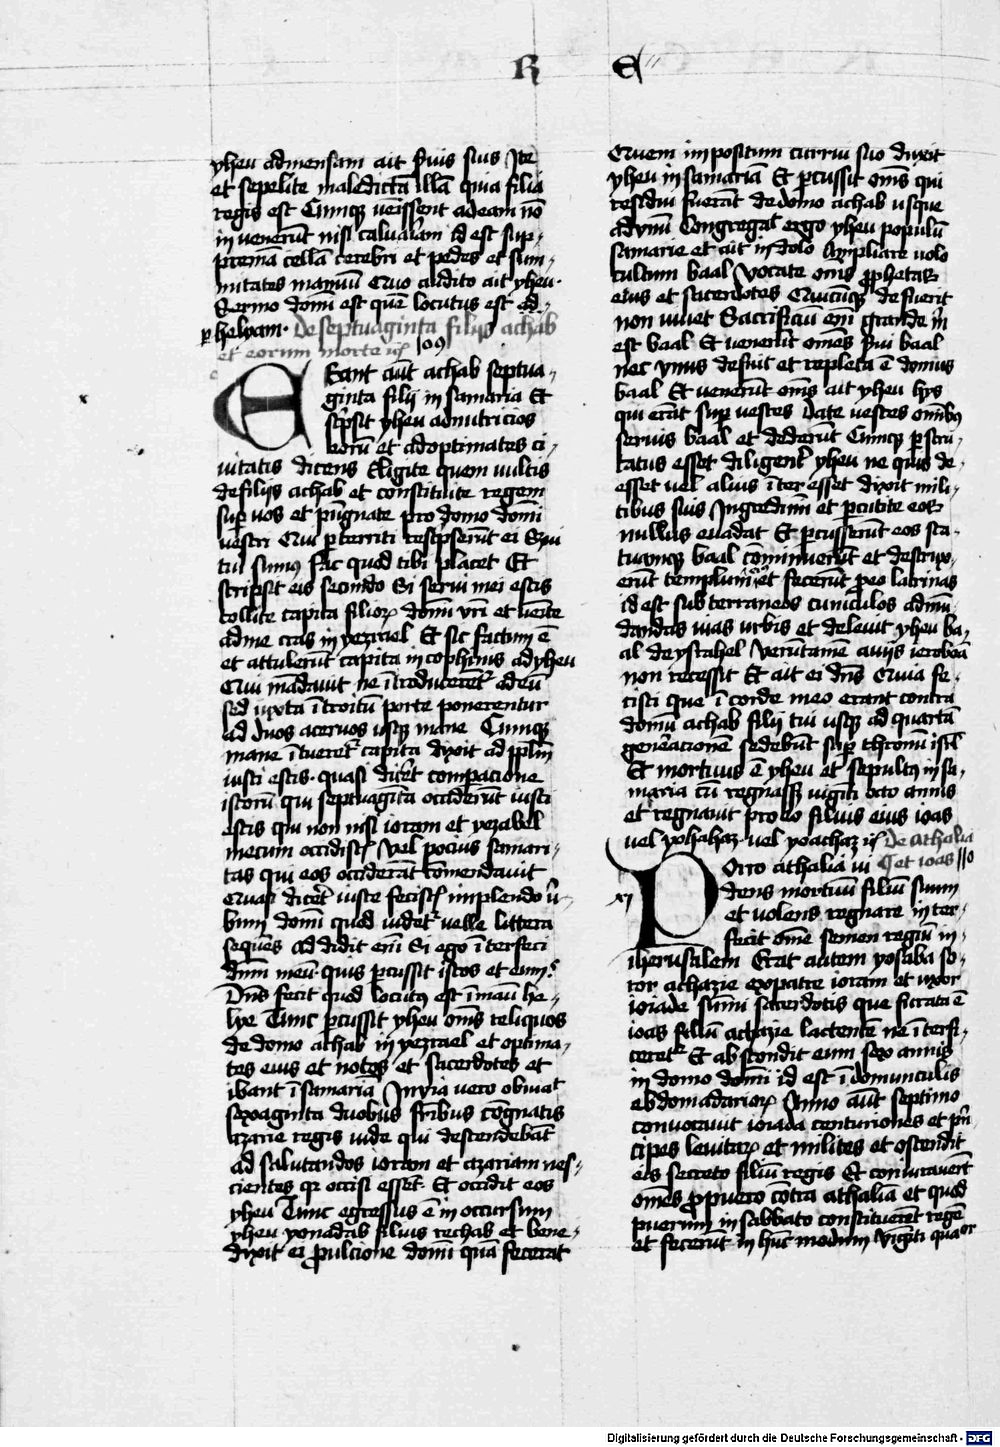 R E
yheu admensam ait suis suis Ite
et sepelite maledictã illã quia filia
regis est Cumq̃ uẽissent ad eam nõ
in venerũt nisi caluariam id est sup-
premã cellã cerebri et pedes et sum-
mitates manuũ Quo audito ait yheu.
Sermo domĩ est quẽ locutus est ed-
ꝑ helyam. De septuaginta filijs achab
et eorum morte 109
Erant aũt achab septua-
ginta filij in samaria Et
scp̃sit yheu ad nutricios
eorũ et ad optimates ci-
uitatis dicens Eligite quem uultis
de filijs achab et constituite regem
suꝑ uos et pũgnate pro domo domĩ
uestri Qui ꝑterriti rescpserũt ei Serui
tui sumꝰ fac quod tibi placet Et
scripsit eis secundo Si serui mei estis
tollite capita filioꝝ domĩ vri et ueĩte
ad me cras in yezrael Et sic factum ẽ
et attulerũt capita in cophinis ad yheu
Qui mãdauit ne ĩtroducerẽtʳ ad eũ
sed iuxta ĩtroitũ porte ponerentur
ad duos aceruos usq̃ mane Cumq̃
mane ĩtueretʳ capita dixit ad ppl̃m
iusti estis. quasi dic̃et compatione
istorũ qui septuagĩta occiderũt iusti
estis qui non nisi ioram et yezabel
mecum occidistꝭ vel pocius samari-
tas qui eos occiderãt comendauit
Quasi dic̃et iuste fecistꝭ implendo ũ-
bum domĩ quod uidetʳ velle littera
seq̃ues ad didit enĩ Si ego ĩterfeci
dnm̃ meũ. quis ꝑcussit istos et enim.
Dñs fecit quod locutꝰ est ĩ manũ he-
lye Tunc ꝑcussit yheu om̃s reliquos
de domo achab in yezrael et optima-
tes eius et notos et sacerdotes et
ibant ĩ samariã In via uero obuiat
sexaginta duobus fribus cõgnatis
azarie regis iude qui descendebãt
ad salutandos ioram et azariam nes-
cientes qꝛ occisi essẽt. Et occidit eos
yheu Tunc egressus ẽ in occursum
yheu yonadab filius rechab et bene-
dixit ei ꝓ ulcione domĩ quã fecerat
Quem impositum currui suo duxit
yheu in samariã Et ꝑcussit om̃s qui
residui fuerãt de domo achab usque
ad vnũ Congregat̃ ergo yheu populũ
samarie et ait in dolo Ampliare uolo
cultum baal Vocate om̃s ꝓphetas
eius et sacerdotes Quicũq̃ defuerit
non uiuet Sacrificiũ enĩ grande m̃
est baal Et uenerũt om̃es s̃ui baal
nec vnus defuit et repleta ẽ domus
baal Et uenerũt om̃s ait yheu hijs
qui erãt suꝑ uestes Date uestes om̃ibꝰ
seruis baal et dederũt Cumq̃ ꝑscru-
tatus esset diligent̃ yheu ne quis de-
esset uel alius ĩter esset dixit mili-
tibus suis Ingredimĩ et ꝑcutite eos
nullus euadat Et ꝑcusserũt eos sta-
tuamq̃ baal cominuerũt et destrux-
erũt templum et fecerũt ꝓ eo latrinas
id est subterraneos cuniculos ad mũ-
dandas uias urbis et deleuit yheu ba-
al de ysrahel Verũtamẽ a uijs ieroboã
non recessit Et ait ei dñs Quia fe-
cisti que ĩ corde meo erant contra
domũ achab filij tui usq̃ ad quartã
generacionẽ sedebũt suꝑ thronũ isrl̃
Et mortuus ẽ yheu et sepultꝰ in sa-
maria cũ regnass̃ uigĩti octo annis
et regnauit pro eo filius eius ioas
uel yohahaz. vel yoachaz De Athalia
et ioas 110
xj Porro athalia ui
dens mortuũ filiũ suum
et uolens regnare in ter-
fecit om̃e semen regiũ in-
iherusalem Erat autem yosaba so-
ror achazie ex patre ioram et uxor
ioiade sum̃i sacerdotis que furata ẽ
ioas filiũ achazie lactentẽ ne ĩterfi-
ceretʳ Et abscondit eum sex annis
in domo domĩ id est ĩ domunculis
ebdomadarioꝝ Anno aũt septimo
conuocauit ioiada centuriones et prĩ
cipes leuitaꝝ et milites et ostendit
eis secreto filiũ regis Et coniurauerũt
om̃es ꝓ puero cõtra athaliã et quod
puerum in sabbato constituerẽt regẽ
et fecerũt in hũc modum Viginti quatuor
Digitalisierung gefördert durch die Deutsche Forschungsgemeinschaft - DFG